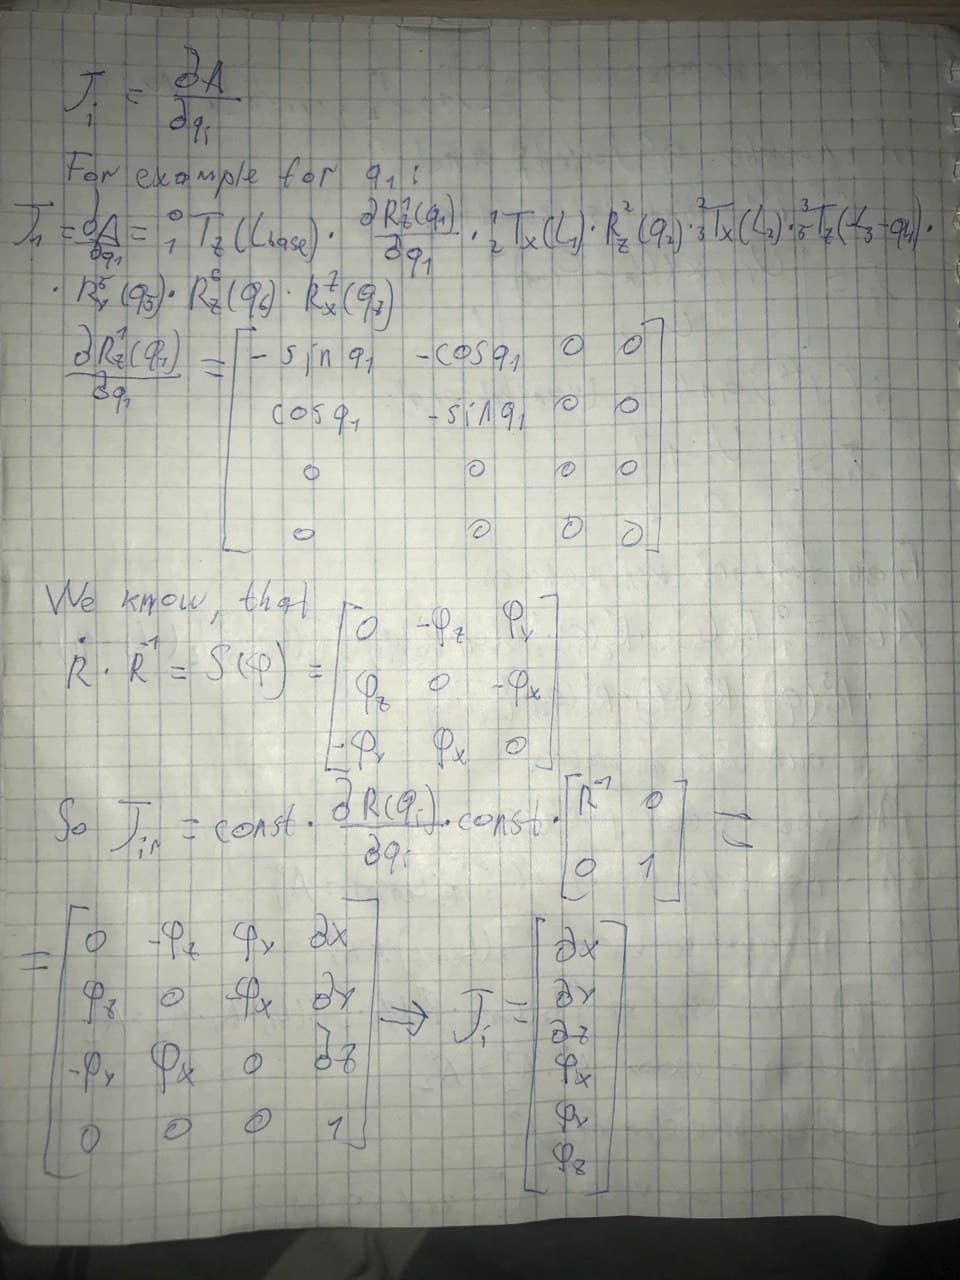 J_i = ∂A/∂q_i
For example for q_1:
J_1 = ∂A/∂q_1 = ⁰₁T_z(L_base) · ∂R_z¹(q_1)/∂q_1 · ¹₂T_x(L_1) · R_z²(q_2) · ²₃T_x(L_2) · ³₅T_z(L_3-q_4) ·
· R_y⁵(q_5) · R_z⁶(q_6) · R_x⁷(q_7)
∂R_z¹(q_1)/∂q_1 = [ -sin q_1 -cos q_1 0 0
cos q_1 -sin q_1 0 0
0 0 0 0
0 0 0 0 ]
We know, that
Ṙ · R⁻¹ = S(φ) = [ 0 -φ_z φ_y
φ_z 0 -φ_x
-φ_y φ_x 0 ]
So J_in = const · ∂R(q_i)/∂q_i · const · [ R⁻¹ 0
0 1 ] =
= [ 0 -φ_z φ_y ∂x
φ_z 0 -φ_x ∂y
-φ_y φ_x 0 ∂z
0 0 0 1 ] ⇒ J_i = [ ∂x
∂y
∂z
φ_x
φ_y
φ_z ]